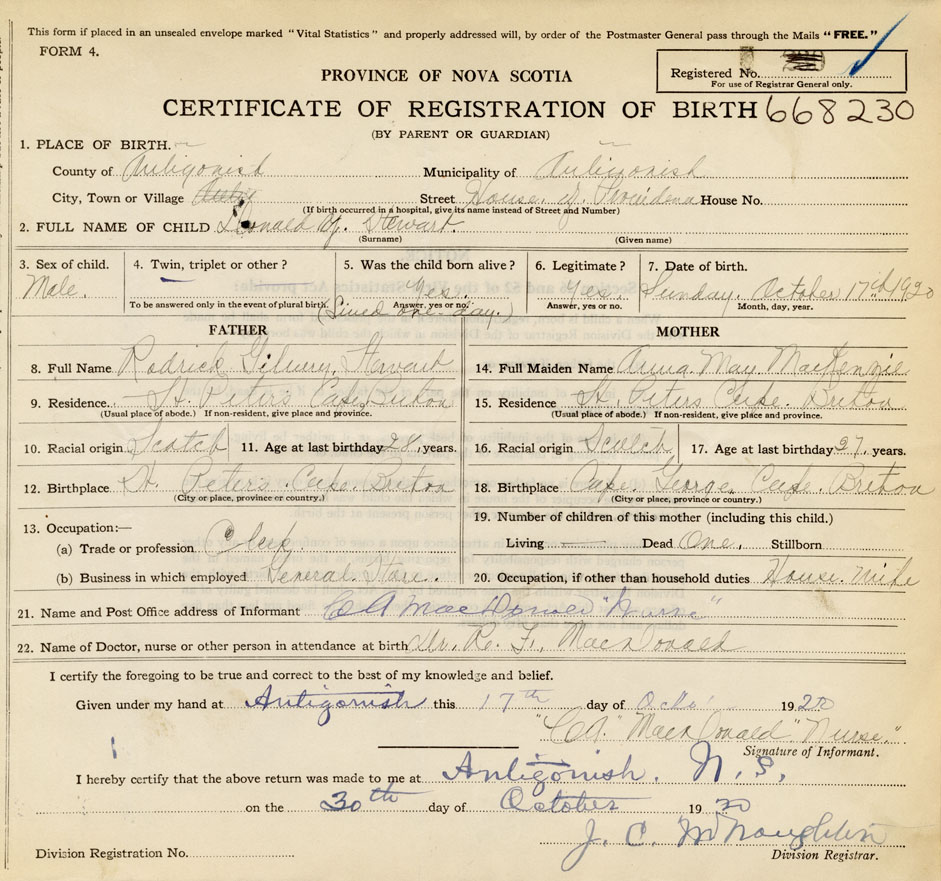 This form if placed in an unsealed envelope marked "Vital Statistics" and properly addressed will, by order of the Postmaster General pass through the Mails "FREE."
FORM 4.
Registered No.
For use of Registrar General only.
PROVINCE OF NOVA SCOTIA
CERTIFICATE OF REGISTRATION OF BIRTH 668230
(BY PARENT OR GUARDIAN)
1. PLACE OF BIRTH.
County of Antigonish Municipality of Antigonish
City, Town or Village Street House of Providence House No.
(If birth occurred in a hospital, give its name instead of Street and Number)
2. FULL NAME OF CHILD Donald Stewart.
(Surname) (Given name)
3. Sex of child. 4. Twin, triplet or other ? 5. Was the child born alive ? 6. Legitimate ? 7. Date of birth.
Male. Yes. Yes. Sunday. October 17th 1920
To be answered only in the event of plural birth. Answer, yes or no. Answer, yes or no. Month, day, year.
(Lived one day.)
FATHER MOTHER
8. Full Name Rodrick Stewart 14. Full Maiden Name Anna May MacKenzie
9. Residence. St. Peters Cape Breton 15. Residence St. Peters Cape Breton
(Usual place of abode.) If non-resident, give place and province. (Usual place of abode.) If non-resident, give place and province.
10. Racial origin Scotch 11. Age at last birthday 28, years. 16. Racial origin Scotch 17. Age at last birthday 27, years.
12. Birthplace St. Peters Cape Breton 18. Birthplace Cape George, Cape Breton
(City or place, province or country.) (City or place, province or country.)
13. Occupation:— 19. Number of children of this mother (including this child.)
(a) Trade or profession Clerk. Living Dead One, Stillborn
(b) Business in which employed General Store. 20. Occupation, if other than household duties House Wife
21. Name and Post Office address of Informant C A MacDonald "Nurse"
22. Name of Doctor, nurse or other person in attendance at birth Dr. R. F. MacDonald
I certify the foregoing to be true and correct to the best of my knowledge and belief.
Given under my hand at Antigonish this 17th day of Octo 1920
"C A" MacDonald "Nurse."
Signature of Informant.
I hereby certify that the above return was made to me at Antigonish. N. S.
on the 30th day of October 1920
J. C. McNaughton
Division Registration No. Division Registrar.